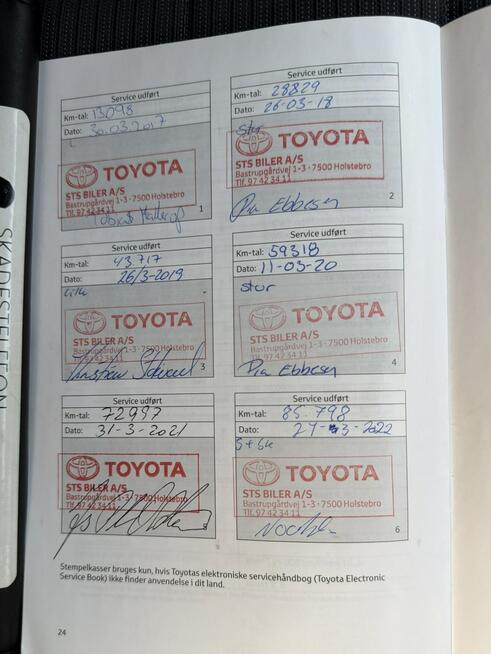 Service udført
Km-tal: 13098
Dato: 30.03.2017
TOYOTA
STS BILER A/S
Bastrupgårdvej 1-3 · 7500 Holstebro
Tlf. 97 42 34 11
1
Service udført
Km-tal: 28829
Dato: 26-03-18
stor
TOYOTA
STS BILER A/S
Bastrupgårdvej 1-3 · 7500 Holstebro
Tlf. 97 42 34 11
Pia Ebbesen
2
Service udført
Km-tal: 43.717
Dato: 26/3-2019
TOYOTA
STS BILER A/S
Bastrupgårdvej 1-3 · 7500 Holstebro
Tlf. 97 42 34 11
3
Service udført
Km-tal: 59318
Dato: 11-03-20
stor
TOYOTA
STS BILER A/S
Bastrupgårdvej 1-3 · 7500 Holstebro
Tlf. 97 42 34 11
Pia Ebbesen
4
Service udført
Km-tal: 72997
Dato: 31-3-2021
TOYOTA
STS BILER A/S
Bastrupgårdvej 1-3 · 7500 Holstebro
Tlf. 97 42 34 11
5
Service udført
Km-tal: 85.798
Dato: 27-3-2022
TOYOTA
STS BILER A/S
Bastrupgårdvej 1-3 · 7500 Holstebro
Tlf. 97 42 34 11
6
Stempelkasser bruges kun, hvis Toyotas elektroniske servicehåndbog (Toyota Electronic
Service Book) ikke finder anvendelse i dit land.
24